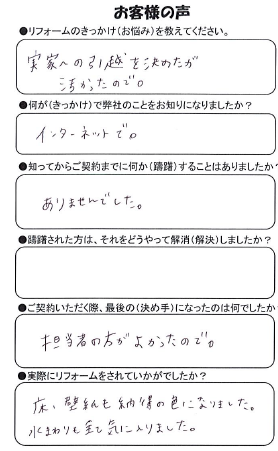 お客様の声
●リフォームのきっかけ（お悩み）を教えてください。
実家への引越を決めたが
汚かったので。
●何が（きっかけ）で弊社のことをお知りになりましたか？
インターネットで。
●知ってからご契約までに何か（躊躇）することはありましたか？
ありませんでした。
●躊躇された方は、それをどうやって解消（解決）しましたか？
●ご契約いただく際、最後の（決め手）になったのは何でしたか
担当者の方がよかったので。
●実際にリフォームをされていかがでしたか？
床、壁紙も納得の色になりました。
水まわりも全て気に入りました。